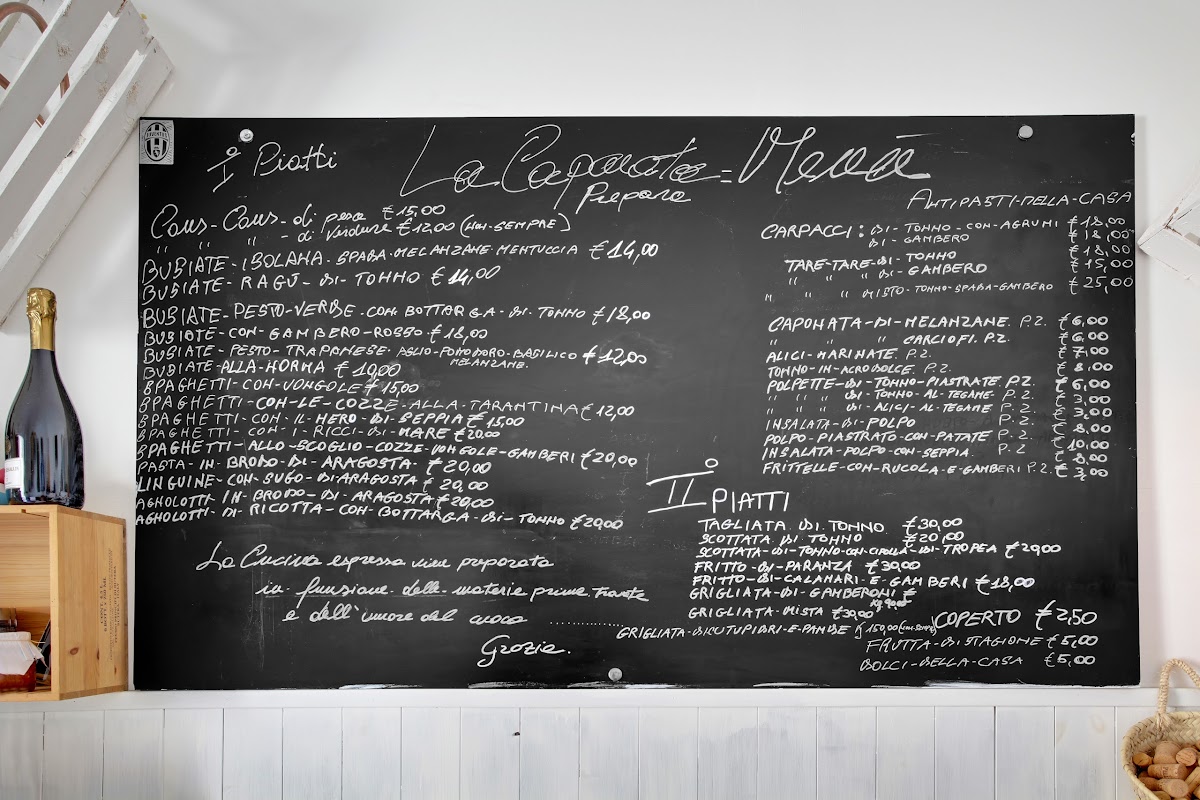 JUVENTUS
I° Piatti
La Caponata = Menù
Prepara
Cous-Cous-di pesce € 15,00
" " " - di verdure € 12,00 (NON-SEMPRE)
BUSIATE-ISOLANA-SPADA-MELANZANE-MENTUCCIA € 14,00
BUSIATE-RAGÙ-DI-TONNO € 14,00
BUSIATE-PESTO-VERDE-CON BOTTARGA-DI-TONNO € 18,00
BUSIATE-CON-GAMBERO-ROSSO € 18,00
BUSIATE-PESTO-TRAPANESE-AGLIO-POMODORO-BASILICO € 12,00
MELANZANE.
BUSIATE-ALLA-NORMA € 10,00
SPAGHETTI-CON-VONGOLE € 15,00
SPAGHETTI-CON-LE-COZZE-ALLA-TARANTINA € 12,00
SPAGHETTI-CON-IL-NERO-DI-SEPPIA € 15,00
SPAGHETTI-CON-I-RICCI-DI-MARE € 20,00
SPAGHETTI-ALLO-SCOGLIO-COZZE-VONGOLE-GAMBERI € 20,00
PASTA-IN-BRODO-DI-ARAGOSTA- € 20,00
LINGUINE-CON-SUGO-DI-ARAGOSTA € 20,00
AGNOLOTTI-IN-BRODO-DI-ARAGOSTA € 20,00
AGNOLOTTI-DI-RICOTTA-CON-BOTTARGA-DI-TONNO € 20,00
La Cucina espressa viene preparata
in funzione delle materie prime trovate
e dell'umore del cuoco ..............
Grazie.
ANTIPASTI-DELLA-CASA
CARPACCI: DI-TONNO-CON-AGRUMI € 18,00
DI-GAMBERO € 18,00
TARE-TARE-DI-TONNO € 18,00
" " DI-GAMBERO € 15,00
" " " MISTO-TONNO-SPADA-GAMBERO € 25,00
CAPONATA-DI-MELANZANE. P.2. € 6,00
" " CARCIOFI. P.2. € 6,00
ALICI-MARINATE. P.2. € 7,00
TONNO-IN-AGRODOLCE. P.2. € 8,00
POLPETTE-DI-TONNO-PIASTRATE. P.2. € 6,00
" " " DI-TONNO-AL-TEGAME- P.2. € 3,00
" " " DI-ALICI-AL-TEGAME P.2. € 3,00
INSALATA-DI-POLPO P.2. € 8,00
POLPO-PIASTRATO-CON-PATATE P.2. € 10,00
INSALATA-POLPO-CON-SEPPIA P.2. € 8,00
FRITTELLE-CON-RUCOLA-E-GAMBERI P.2. € 3,00
II° PIATTI
TAGLIATA DI TONNO € 30,00
SCOTTATA DI TONNO € 20,00
SCOTTATA-DI-TONNO-CON-CIPOLLA-DI-TROPEA € 20,00
FRITTO-DI-PARANZA € 30,00
FRITTO-DI-CALAMARI-E-GAMBERI € 18,00
GRIGLIATA-DI-GAMBERONI €
GRIGLIATA-MISTA € 30,00
GRIGLIATA-DI
COPERTO € 2,50
FRUTTA-DI-STAGIONE € 5,00
DOLCI-DELLA-CASA € 5,00